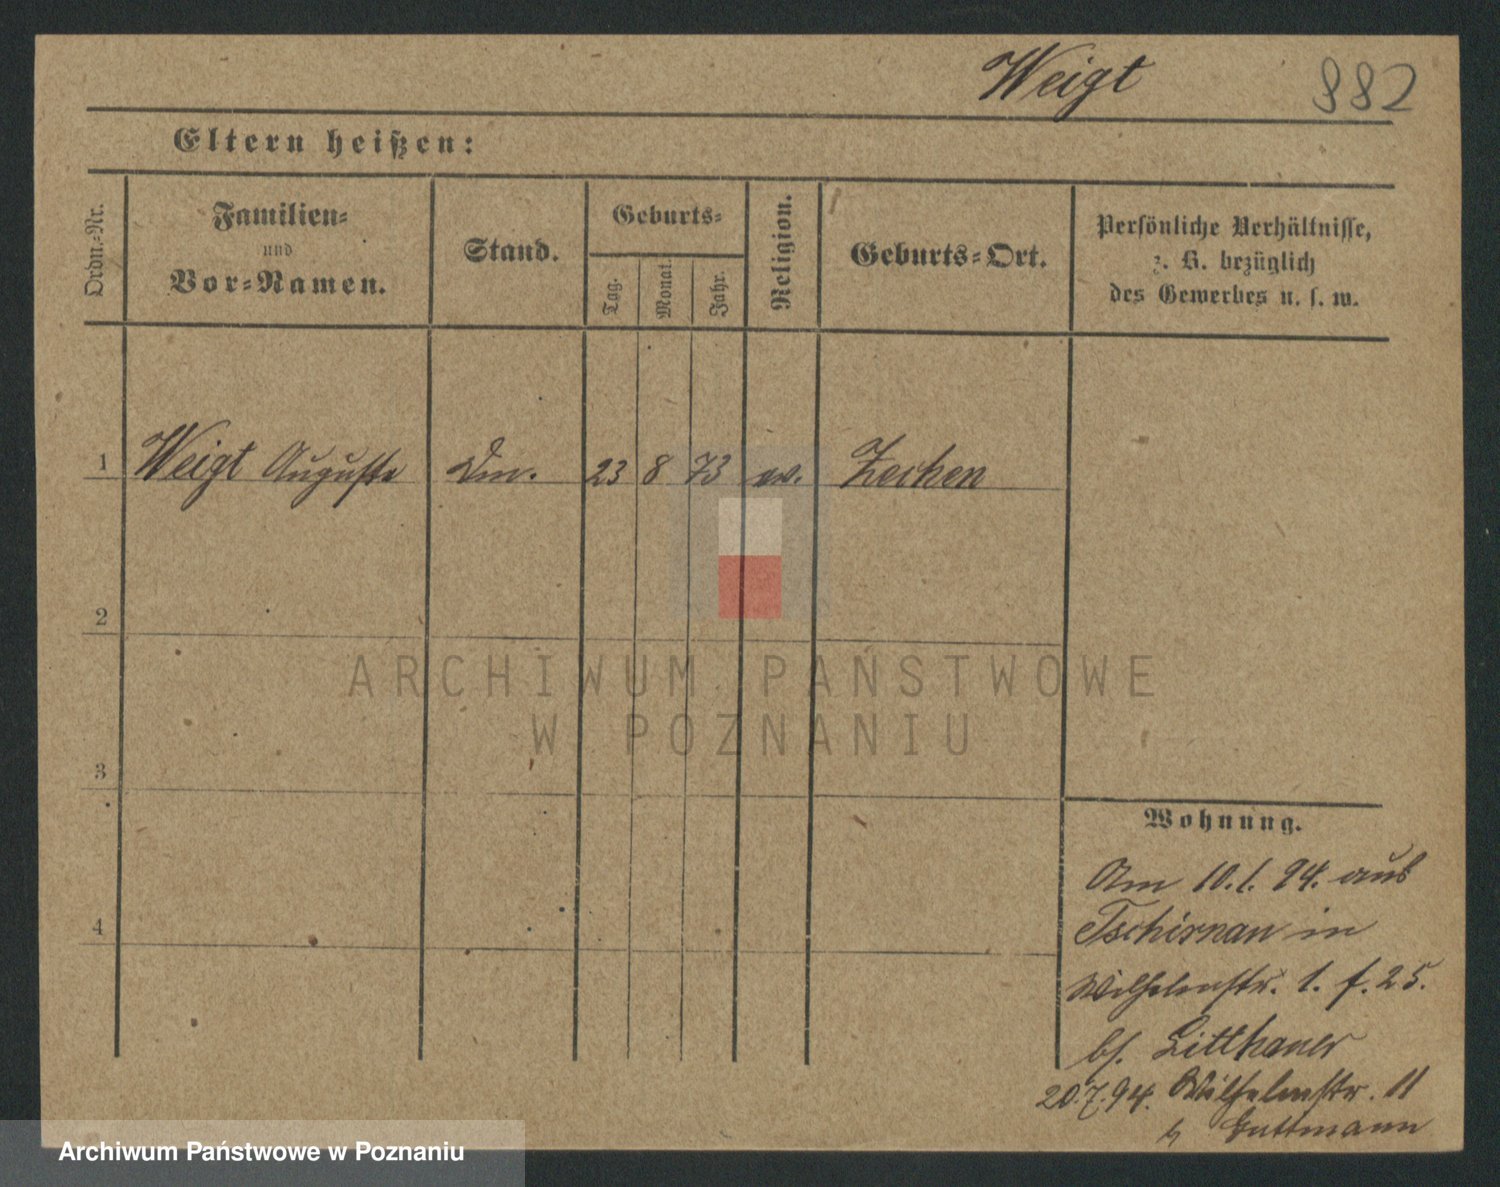 Weigt 882
Eltern heißen:
Ordn.-Nr.
Familien-
und
Vor-Namen.
Stand.
Geburts-
Tag.
Monat.
Jahr.
Religion.
Geburts-Ort.
Persönliche Verhältnisse,
z. B. bezüglich
des Gewerbes u. s. w.
1 Weigt Auguste 23 8 73 ev. Zechen
2
3
4
Wohnung.
Am 10.1.94. aus
Tschirnau in
Wilhelmstr. 1. f. 25.
bs. Litthauer
20.7.94. Wilhelmstr. 11
Guttmann
ARCHIWUM PAŃSTWOWE
W POZNANIU
Archiwum Państwowe w Poznaniu